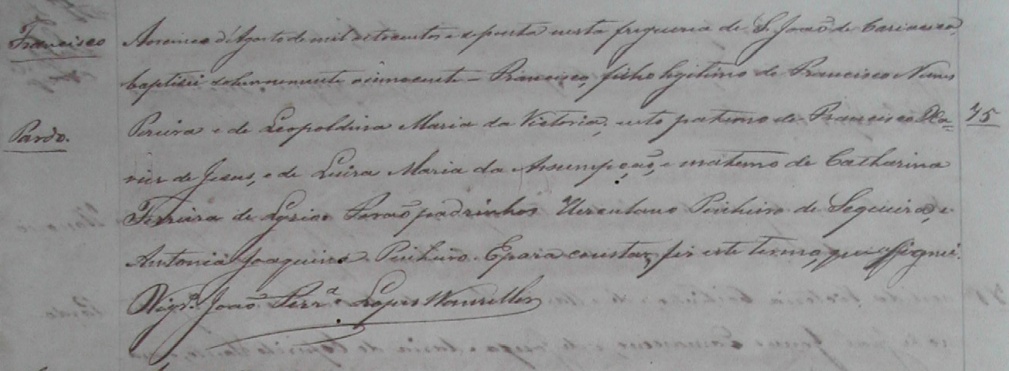 Francisco
Pardo.
Aos cinco d'Agosto de mil oitocentos e setenta nesta freguezia de S. João de Cariacica,
baptisei solemnemente o innocente Francisco, filho legitimo de Francisco Nunes
Pereira e de Leopoldina Maria da Victoria, neto paterno de Francisco Xa-
vier de Jesus, e de Luiza Maria da Assumpção, e materno de Catharina
Ferreira de Forão padrinhos Pinheiro de Sequeira, e
Antonia Joaquina Pinheiro. E para constar fiz este termo, que assignei.
Vigr.º João Ferr.ª Lopes Wanzeller
75